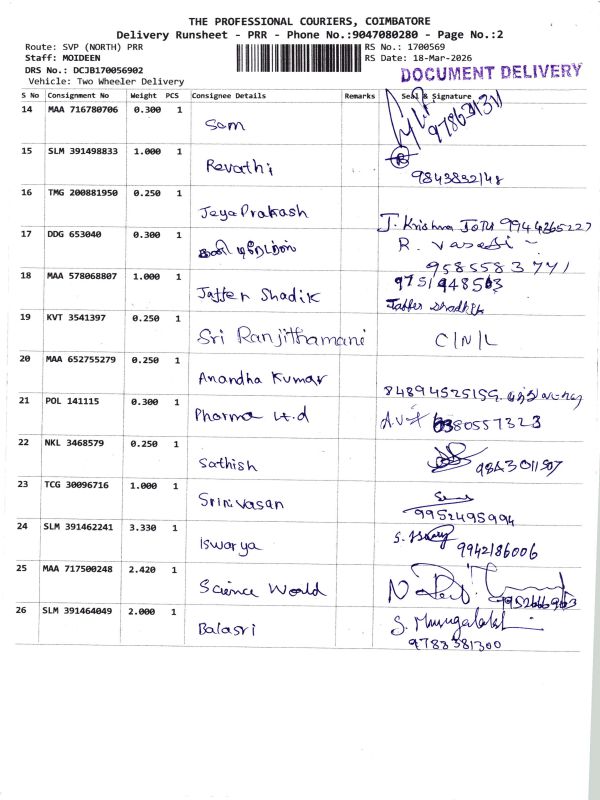 THE PROFESSIONAL COURIERS, COIMBATORE
Delivery Runsheet - PRR - Phone No.:9047080280 - Page No.:2
Route: SVP (NORTH) PRR
RS No.: 1700569
Staff: MOIDEEN
RS Date: 18-Mar-2026
DRS No.: DCJB170056902
Vehicle: Two Wheeler Delivery
DOCUMENT DELIVERY
S No Consignment No Weight PCS Consignee Details Remarks Seal & Signature
14 MAA 716780706 0.300 1
Sam
15 SLM 391498833 1.000 1
Revathi
9843832148
16 TMG 200881950 0.250 1
JeyaPrakash
J. Krishna 9944265227
17 DDG 653040 0.300 1
R.
9585583771
18 MAA 578068807 1.000 1
Jaffer Shadik
9751948563
Jaffer Shadik
19 KVT 3541397 0.250 1
Sri Ranjithamani
C/N/L
20 MAA 652755279 0.250 1
Anandha Kumar
8489452515
21 POL 141115 0.300 1
Pharma Lt.d
6380557323
22 NKL 3468579 0.250 1
Sathish
9843011507
23 TCG 30096716 1.000 1
Srinivasan
9952495994
24 SLM 391462241 3.330 1
Iswarya
9942186006
25 MAA 717500248 2.420 1
Science World
26 SLM 391464049 2.000 1
Balasri
9788381300